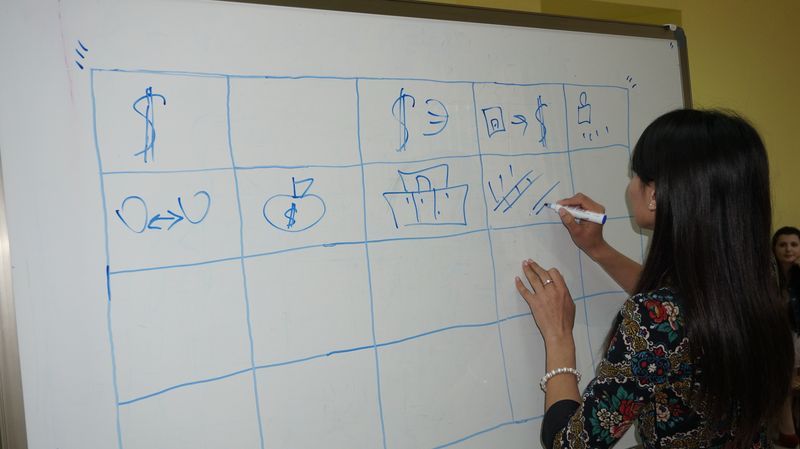 $ $ → $
↔ $